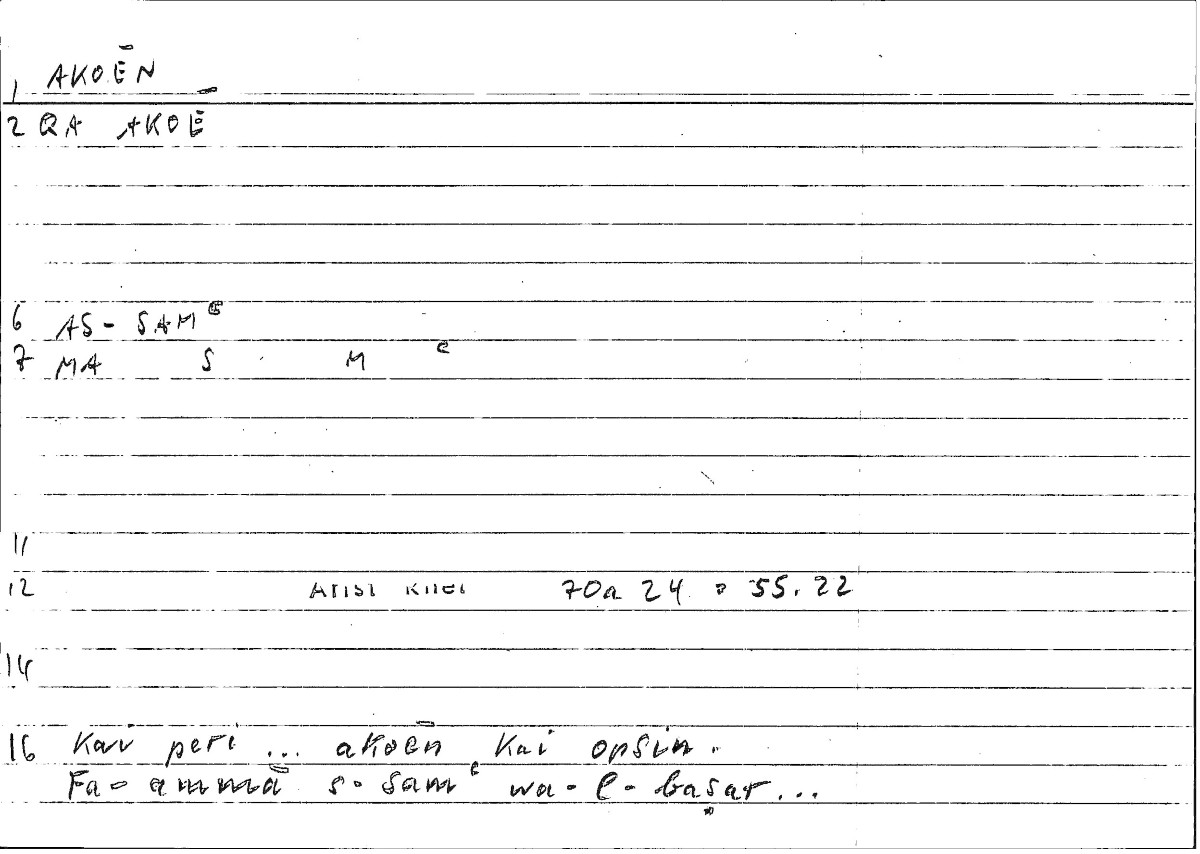 1 AKOĒN
2 QA AKOĒ
6 AS-SAMᶜ
7 MA S M ᶜ
11
12 Arist Rhet 70a 24 = 55.22
14
16 Kai peri ... akoēn kai opsin.
Fa-ammā s-samᶜ wa-l-baṣar...